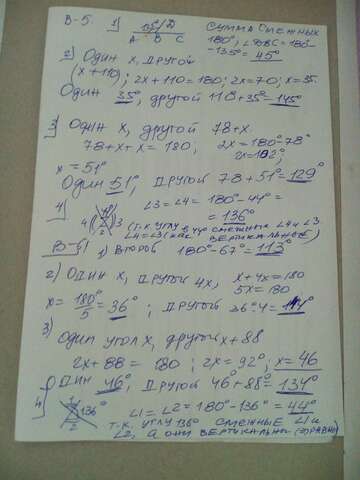 В-5 1) 135° D СУММА СМЕЖНЫХ
A B C 180°, ∠DBC = 180°
-135° = 45°
2) ОДИН X, ДРУГОЙ
(X+110); 2X+110=180; 2X=70; X=35.
ОДИН 35°, ДРУГОЙ 110+35°=145°
3) ОДИН X, ДРУГОЙ 78+X.
78+X+X=180, 2X=180°-78°
X=51°
ОДИН 51°, ДРУГОЙ 78+51°=129°
4) ∠3=∠4=180°-44°=
=136°
4 1 2 3 (Т.К. УГЛУ 44° СМЕЖНЫ ∠4 И ∠3
∠4=∠3 КАК ВЕРТИКАЛЬНЫЕ)
В-6 1) ВТОРОЙ 180°-67°=113°
2) ОДИН X, ДРУГОЙ 4X, X+4X=180
5X=180
X=180°/5=36°; ДРУГОЙ 36°·4=
3)
ОДИН УГОЛ X, ДРУГОЙ X+88
2X+88=180; 2X=92°, X=46
ОДИН 46°, ДРУГОЙ 46°+88°=134°
4) 1 2 136° ∠1=∠2=180°-136°=44°
Т.К. УГЛУ 136° СМЕЖНЫЕ ∠1 И
∠2, А ОНИ ВЕРТИКАЛЬНЫ